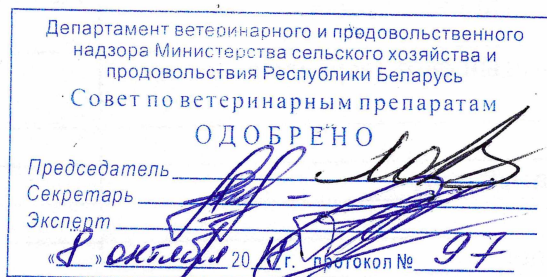 Департамент ветеринарного и продовольственного
надзора Министерства сельского хозяйства и
продовольствия Республики Беларусь
Совет по ветеринарным препаратам
ОДОБРЕНО
Председатель
Секретарь
Эксперт
«8» октября 2018 г. протокол № 97